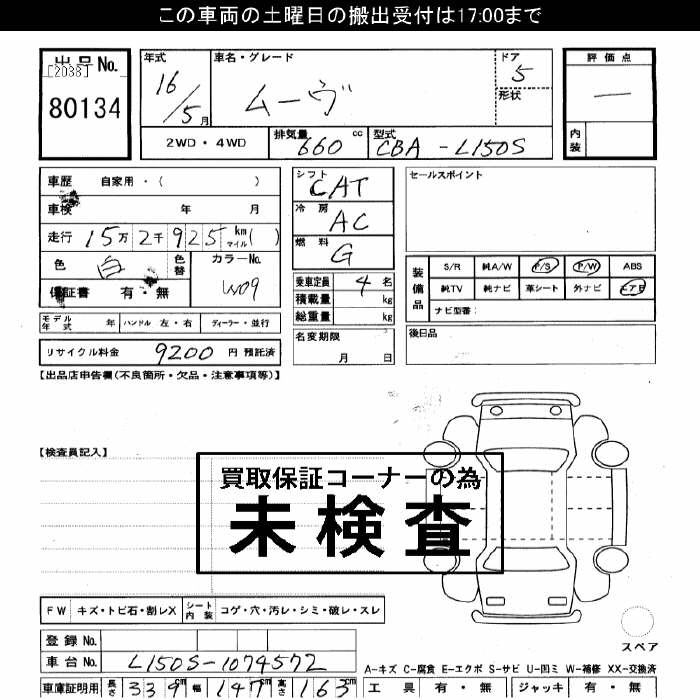 この車両の土曜日の搬出受付は17:00まで
出品No.
[2038]
80134
年式
16/5月
車名・グレード
ムーヴ
ドア
5
形状
評価点
ー
内装
2WD・4WD
排気量
660
cc
型式
CBA-L150S
車歴 自家用・( )
車検 年 月
走行 15万2千925km マイル( )
色
白
色替
カラーNo.
W09
保証書 有・無
モデル年式 年 ハンドル 左・右 ディーラー・並行
リサイクル料金 9200 円 預託済
シフト CAT
冷房 AC
燃料 G
乗車定員 4 名
積載量 kg
総重量 kg
名変期限
月 日
セールスポイント
装備品
S/R 純A/W P/S P/W ABS
純TV 純ナビ 革シート 外ナビ エアB
ナビ型番:
後日品
【出品店申告欄(不良箇所・欠品・注意事項等)】
【検査員記入】
買取保証コーナーの為
未検査
FW キズ・トビ石・割レX シート内装 コゲ・穴・汚レ・シミ・破レ・スレ
登録No.
車台No. L150S-1074572
車庫証明用 長さ 339cm 幅 147cm 高さ 163cm
スペア
A-キズ C-腐食 E-エクボ S-サビ U-凹ミ W-補修 XX-交換済
工具 有・無 ジャッキ 有・無